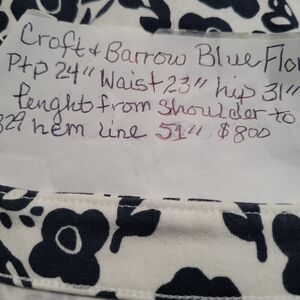 Croft & Barrow Blue Flor
Ptp 24" Waist 23" hip 31"
lenght from Shoulder to
329 hem line 51" $800